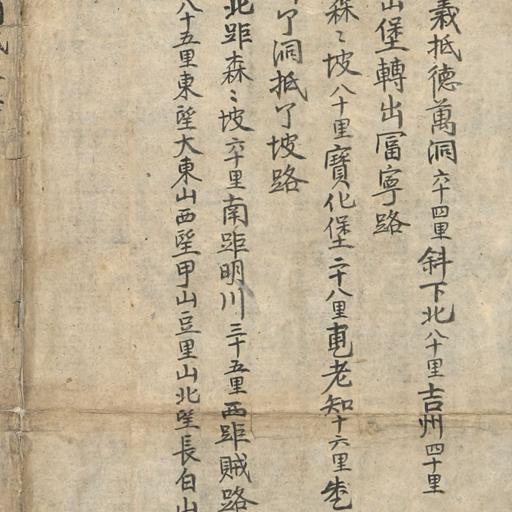 義抵德萬洞六十四里斜下北八十里吉州四十里
堡轉出冨寧路
森〻坡八十里寶化堡二十八里東老知十六里
洞抵了坡路
北距森〻坡六十里南距明川三十五里西距賊路
八十五里東望大東山西望甲山豆里山北望長白山